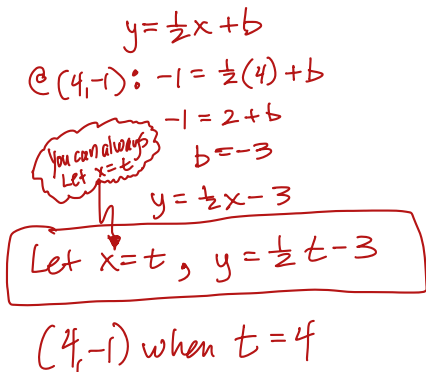 y = ½x + b
@ (4,-1): -1 = ½(4) + b
-1 = 2 + b
b = -3
You can always
Let x=t
y = ½x - 3
Let x=t, y = ½t - 3
(4,-1) when t = 4